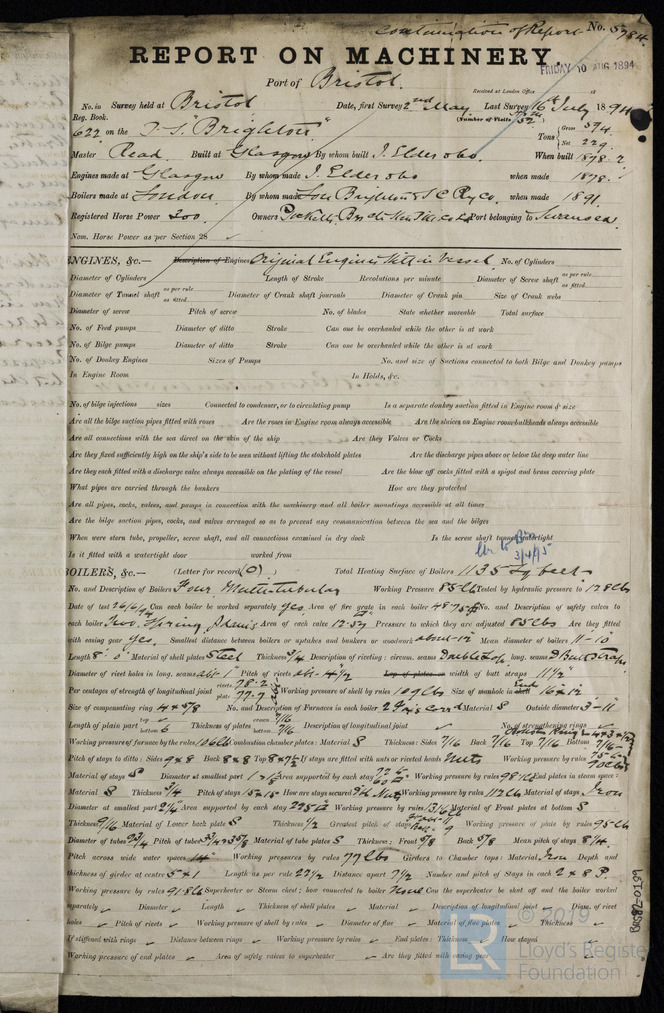 continuation of Report No. 5784
REPORT ON MACHINERY.
FRIDAY 10 AUG 1894
Port of Bristol.
Received at London Office
No. in Survey held at Bristol Date, first Survey 2nd May Last Survey 16th July 1894
Reg. Book. (Number of Visits
622 on the T.S. "Brighton" Tons Gross 594 Net 229.
Master Read Built at Glasgow By whom built J. Elder & Co. When built 1878.2
Engines made at Glasgow By whom made J. Elder & Co when made 1878.
Boilers made at London By whom made Lon Brighton & S C Ry Co. when made 1891.
Registered Horse Power 200 Owners Port belonging to Swansea
Nom. Horse Power as per Section 28
ENGINES, &c.— Description of Engines Original Engines still in Vessel No. of Cylinders
Diameter of Cylinders Length of Stroke Revolutions per minute Diameter of Screw shaft as per rule as fitted
Diameter of Tunnel shaft as per rule as fitted Diameter of Crank shaft journals Diameter of Crank pin Size of Crank webs
Diameter of screw Pitch of screw No. of blades State whether moveable Total surface
No. of Feed pumps Diameter of ditto Stroke Can one be overhauled while the other is at work
No. of Bilge pumps Diameter of ditto Stroke Can one be overhauled while the other is at work
No. of Donkey Engines Sizes of Pumps No. and size of Suctions connected to both Bilge and Donkey pumps
In Engine Room In Holds, &c.
No. of bilge injections sizes Connected to condenser, or to circulating pump Is a separate donkey suction fitted in Engine room & size
Are all the bilge suction pipes fitted with roses Are the roses in Engine room always accessible Are the sluices on Engine room bulkheads always accessible
Are all connections with the sea direct on the skin of the ship Are they Valves or Cocks
Are they fixed sufficiently high on the ship's side to be seen without lifting the stokehold plates Are the discharge pipes above or below the deep water line
Are they each fitted with a discharge valve always accessible on the plating of the vessel Are the blow off cocks fitted with a spigot and brass covering plate
What pipes are carried through the bunkers How are they protected
Are all pipes, cocks, valves, and pumps in connection with the machinery and all boiler mountings accessible at all times
Are the bilge suction pipes, cocks, and valves arranged so as to prevent any communication between the sea and the bilges
When were stern tube, propeller, screw shaft, and all connections examined in dry dock Is the screw shaft tunnel watertight
Is it fitted with a watertight door worked from 3/4/95
BOILERS, &c.— (Letter for record (O)) Total Heating Surface of Boilers 1135 Sq feet.
No. and Description of Boilers Four Multitubular Working Pressure 85 lb Tested by hydraulic pressure to 128 lbs
Date of test 26/6/94 Can each boiler be worked separately yes Area of fire grate in each boiler No. and Description of safety valves to
each boiler Two. Spring Adams Area of each valve Pressure to which they are adjusted 85 lbs Are they fitted
with easing gear yes. Smallest distance between boilers or uptakes and bunkers or woodwork about 12" Mean diameter of boilers 11-10
Length 8'0" Material of shell plates Steel Thickness 3/4 Description of riveting: circum. seams Double Lap long. seams D Butt Straps
Diameter of rivet holes in long. seams Pitch of rivets Lap of plates or width of butt straps 11 1/2"
Per centages of strength of longitudinal joint rivets 78.2 plate 77.7 Working pressure of shell by rules 109 lbs Size of manhole in shell 16 x 12
Size of compensating ring 4 x 5/8 No. and Description of Furnaces in each boiler Material S Outside diameter 3-11"
Length of plain part top bottom 6 Thickness of plates crown 7/16 bottom 7/16 Description of longitudinal joint No. of strengthening rings
Working pressure of furnace by the rules 106 lb Combustion chamber plates: Material S Thickness: Sides 7/16 Back 7/16 Top 7/16 Bottom 7/16
Pitch of stays to ditto: Sides 9 x 8 Back 8 x 8 Top 8 x 7 1/2 If stays are fitted with nuts or riveted heads Nuts Working pressure by rules
Material of stays S Diameter at smallest part Area supported by each stay Working pressure by rules 98 lb End plates in steam space:
Material S Thickness 3/4 Pitch of stays 15 x 15 How are stays secured Nuts Working pressure by rules 112 lb Material of stays Iron
Diameter at smallest part 2 1/4 Area supported by each stay 225 Working pressure by rules Material of Front plates at bottom S
Thickness 9/16 Material of Lower back plate S Thickness 1/2 Greatest pitch of stays Working pressure of plate by rules 95 lb
Diameter of tubes Pitch of tubes Material of tube plates S Thickness: Front 5/8 Back 5/8 Mean pitch of stays 8 1/4.
Pitch across wide water spaces 14" Working pressures by rules 77 lbs Girders to Chamber tops: Material Iron Depth and
thickness of girder at centre 5 x 1 Length as per rule 22 1/2 Distance apart 7 1/2 Number and pitch of Stays in each 2 x 8 P.
Working pressure by rules 91.8 lb Superheater or Steam chest; how connected to boiler None Can the superheater be shut off and the boiler worked
separately Diameter Length Thickness of shell plates Material Description of longitudinal joint Diam. of rivet
holes Pitch of rivets Working pressure of shell by rules Diameter of flue Material of flue plates Thickness
If stiffened with rings Distance between rings Working pressure by rules End plates: Thickness How stayed
Working pressure of end plates Area of safety valves to superheater Are they fitted with easing gear
BRS82-0199
© 2019
Lloyd's Register
Foundation